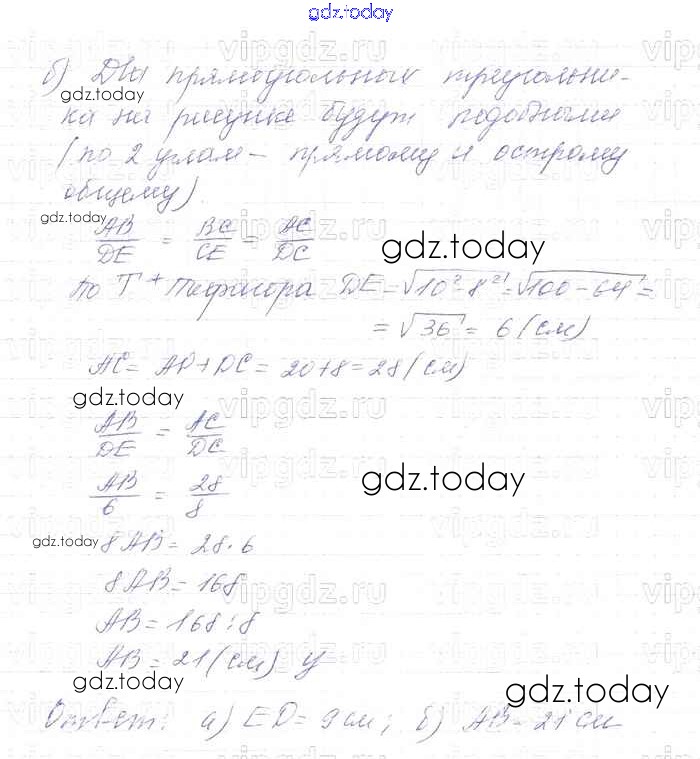 gdz.today
б) Два прямоугольных треугольни-
gdz.today
ка на рисунке будут подобными
(по 2 углам – прямому и острому
общему)
gdz.today
AB/DE = BC/CE = AC/DC
gdz.today
по Т Пифагора DE = √10² - 8² = √100 - 64 =
= √36 = 6 (см)
AC = AD + DC = 20 + 8 = 28 (см)
gdz.today
AB/DE = AC/DC
AB/6 = 28/8
gdz.today
gdz.today
8AB = 28 · 6
8AB = 168
AB = 168 : 8
AB = 21 (см)
gdz.today
gdz.today
Ответ: а) ED = 9 см; б) AB = 21 см